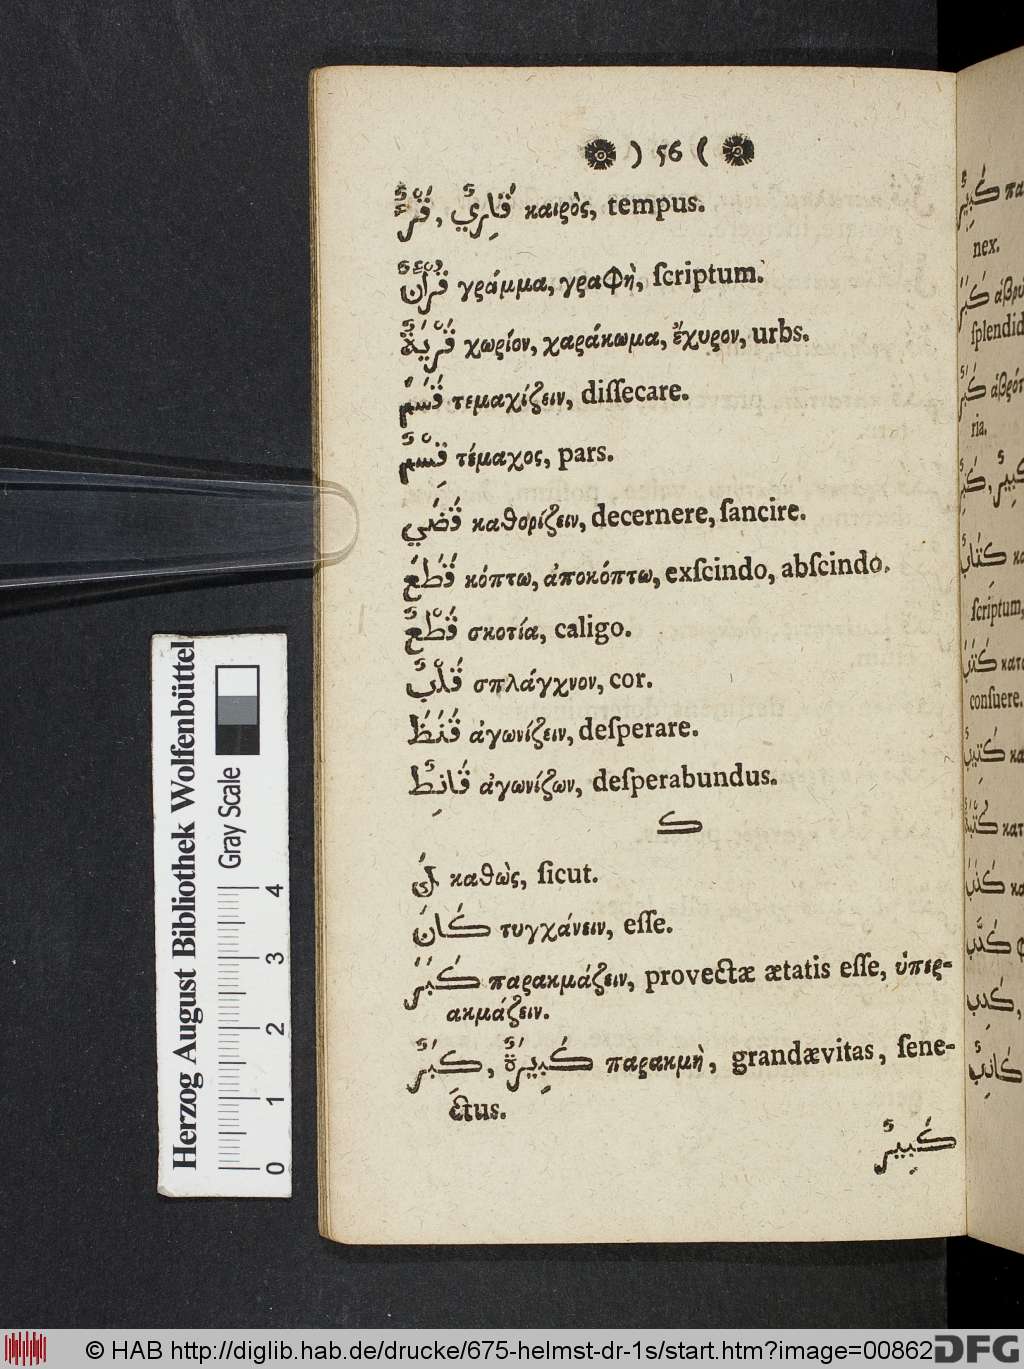 ) 56 (
قَرٌّ, قَارِيٌّ καιρὸς, tempus.
قُرْآنٌ γράμμα, γραφὴ, ſcriptum.
قَرْيَةٌ χωρίον, χαράκωμα, ἔχυρον, urbs.
قَسَمَ τεμαχίζειν, diſſecare.
قِسْمٌ τέμαχος, pars.
قَضَي καθορίζειν, decernere, ſancire.
قَطَعَ κόπτω, ἀποκόπτω, exſcindo, abſcindo.
قَطْعٌ σκοτία, caligo.
قَلْبٌ σπλάγχνον, cor.
قَنَظَ ἀγωνίζειν, deſperare.
قَانِطٌ ἀγωνίζων, deſperabundus.
ك
καθὼς, ſicut.
كَانَ τυγχάνειν, eſſe.
كَبَرَ παρακμάζειν, provectæ ætatis eſſe, ὑπερ-
ακμάζειν.
كِبَرٌ, كَبِيرَةٌ παρακμὴ, grandævitas, ſene-
ctus.
كَبِيرٌ
كَبِيرٌ πα
nex.
كَبَرَ ἁβρυ
ſplendid
ἁβρότ
ria.
كِتَابٌ κα
ſcriptum,
كَتَبَ κατα
conſuere.
كَتِيبٌ κα
κατ
كَذَبَ κα
كَذَّبَ φ
كِذِبٌ,
كَاذِبٌ
Herzog August Bibliothek Wolfenbüttel
Gray Scale
0 1 2 3 4
© HAB http://diglib.hab.de/drucke/675-helmst-dr-1s/start.htm?image=00862
DFG